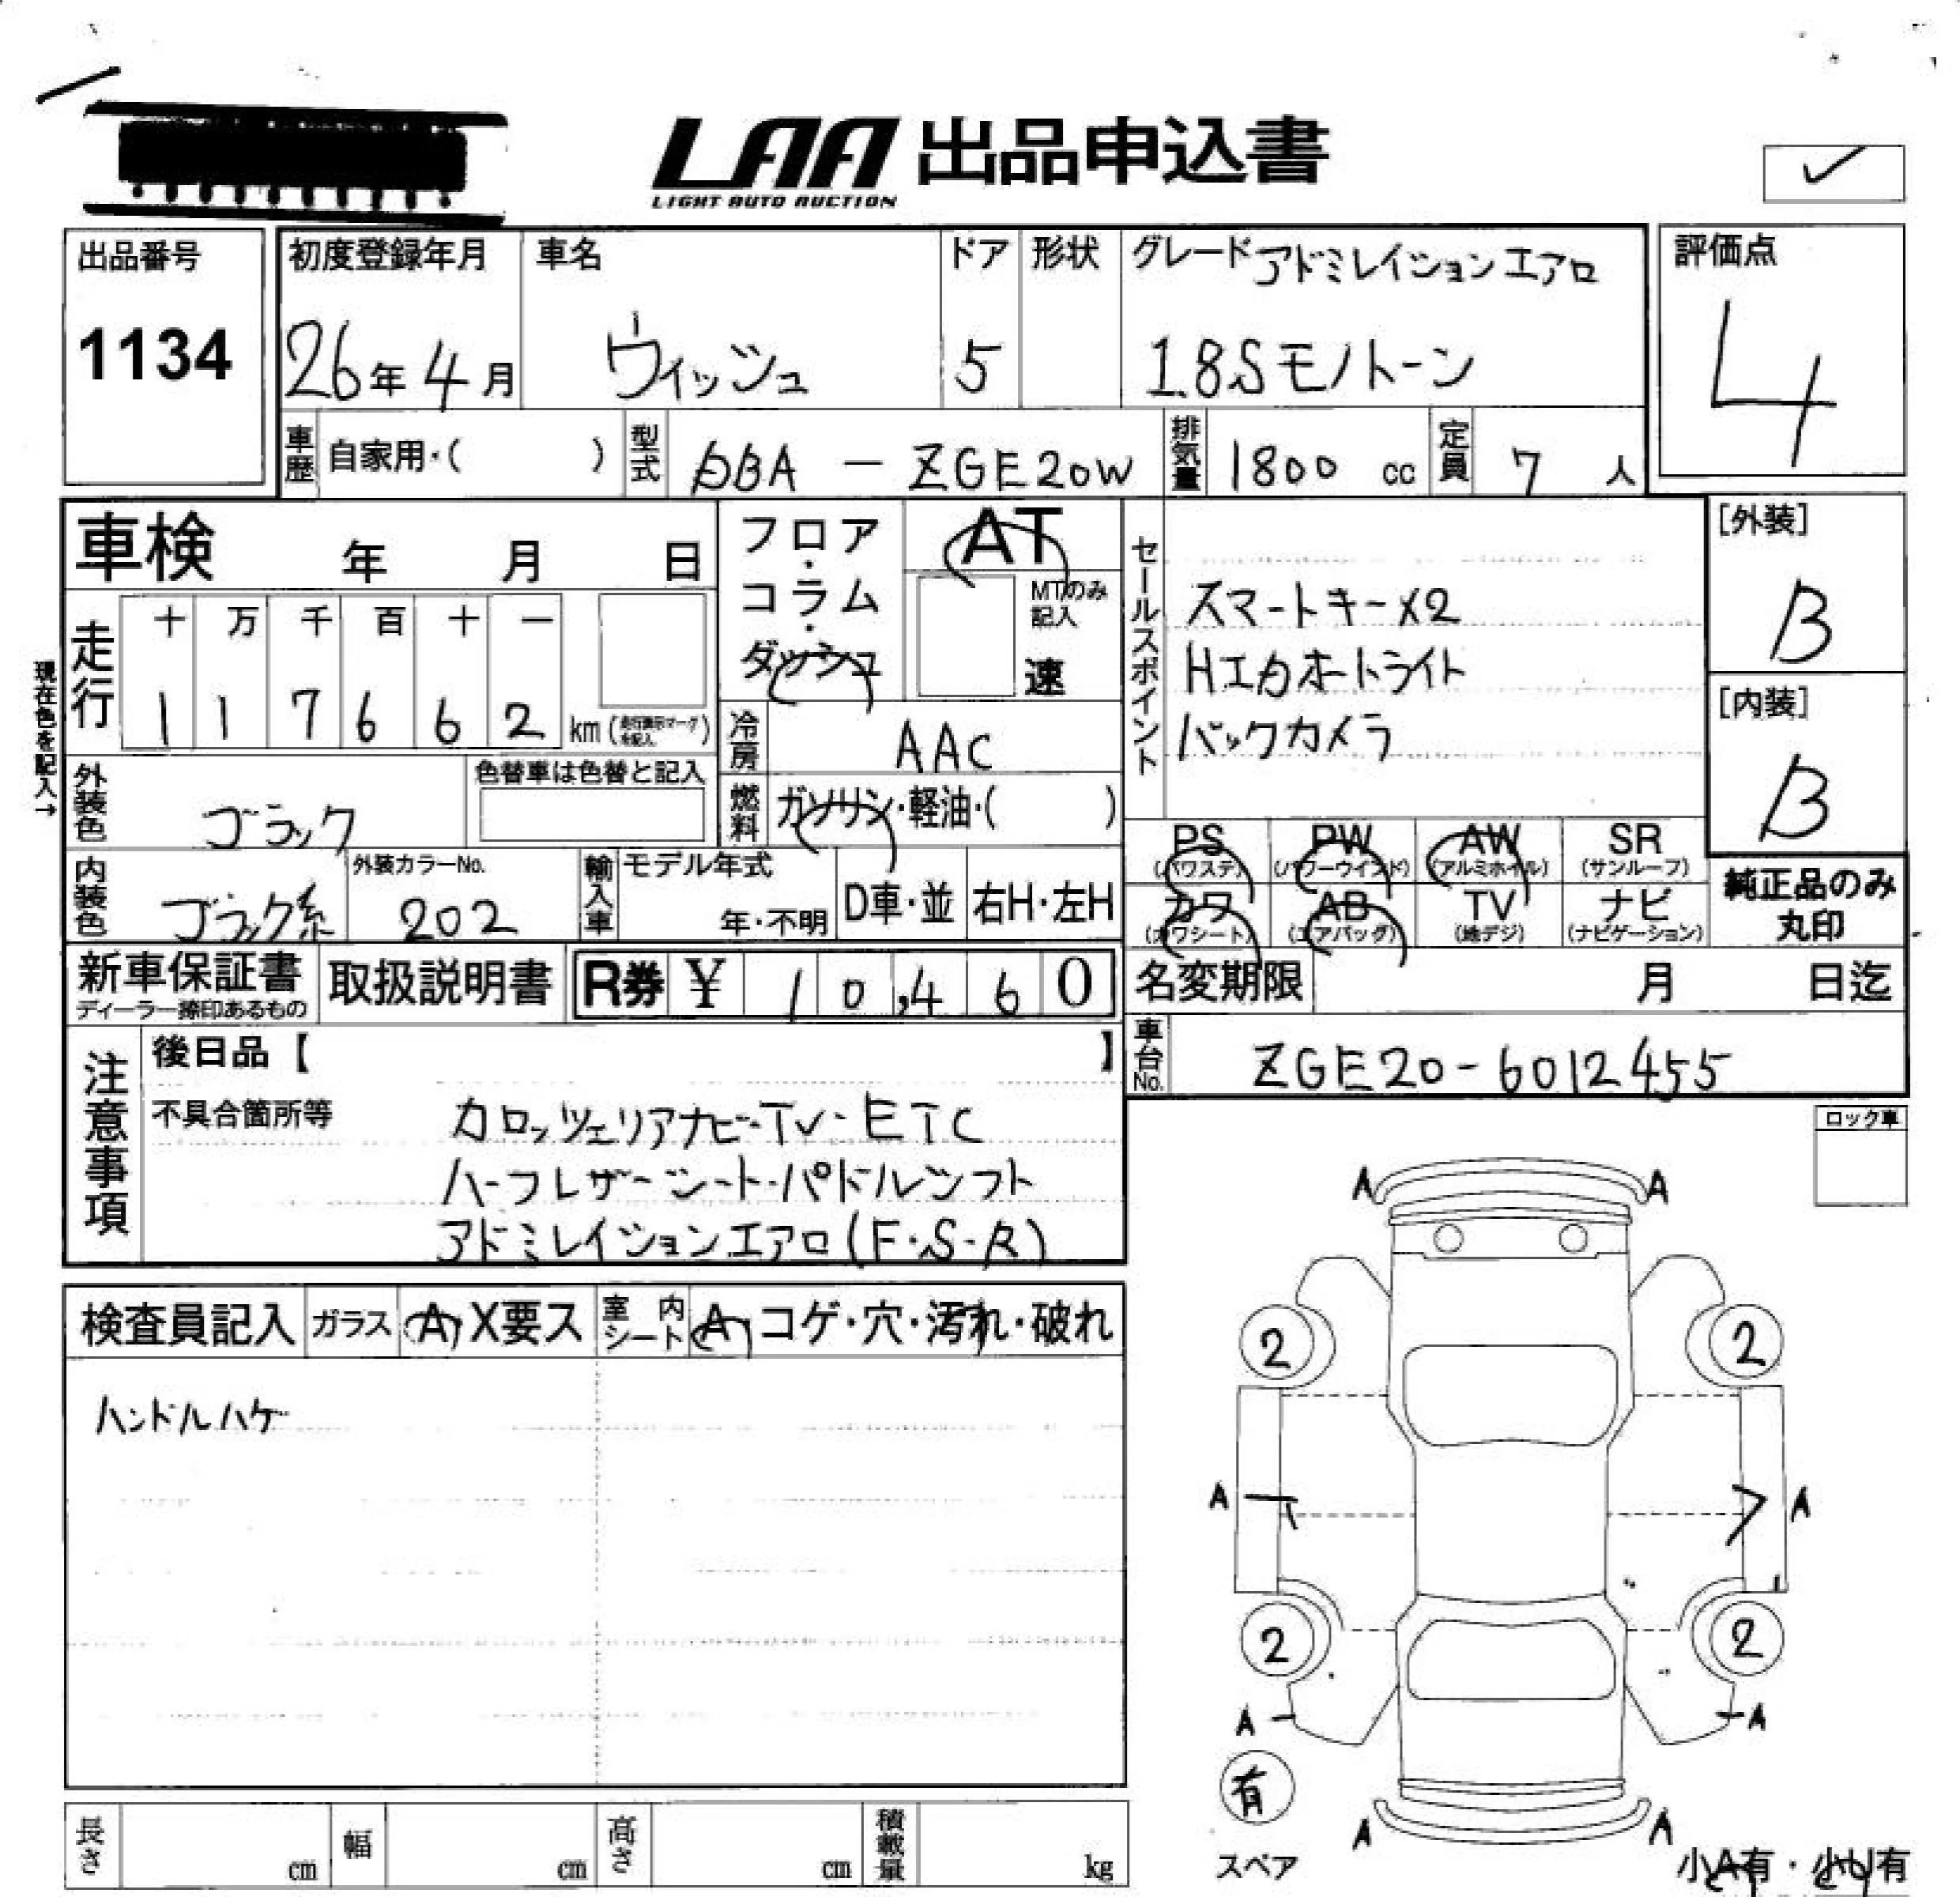 LAA 出品申込書
LIGHT AUTO AUCTION
出品番号
1134
初度登録年月
26年4月
車名
ウィッシュ
ドア
5
形状
グレード アドミレイションエアロ
1.8Sモノトーン
評価点
4
車歴 自家用・( )
型式 DBA - ZGE20W
排気量 1800 cc
定員 7 人
車検 年 月 日
フロア・コラム・ダッシュ
AT
MTのみ記入
速
セールスポイント
スマートキーX2
HIDオートライト
バックカメラ
[外装]
B
[内装]
B
現在色を記入→
走行
十 万 千 百 十 一
1 1 7 6 6 2 km (走行表示マーク未記入)
冷房 AAC
外装色 ブラック
色替車は色替と記入
燃料 ガソリン・軽油・( )
内装色 ブラック系
外装カラーNo.
202
輸入車 モデル年式
年・不明
D車・並
右H・左H
PS (パワステ)
PW (パワーウインド)
AW (アルミホイル)
SR (サンルーフ)
カワ (カワシート)
AB (エアバッグ)
TV (地デジ)
ナビ (ナビゲーション)
純正品のみ
丸印
新車保証書
ディーラー捺印あるもの
取扱説明書
R券 ¥ 10,460
名変期限 月 日迄
車台No. ZGE20-6012455
注意事項
後日品【 】
不具合箇所等
カロッツェリアナビ・TV・ETC
ハーフレザーシート・パドルシフト
アドミレイションエアロ(F・S・R)
ロック車
検査員記入
ガラス A・X要ス
室内シート A・コゲ・穴・汚れ・破れ
ハンドルハゲ
A A
2 2
A A
2 2
A A
有
スペア
A A
小A有・小U有
長さ cm
幅 cm
高さ cm
積載量 kg